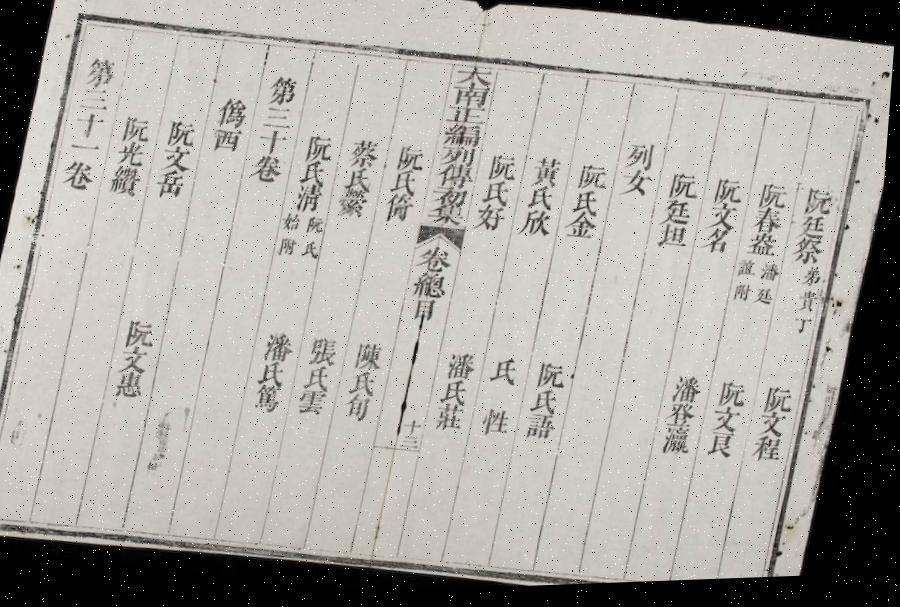 阮廷祭弟貴丁
阮春盎潘廷誼附 阮文程
阮文名 阮文良
阮廷坦 潘登瀛
列女
阮氏金
黃氏欣 阮氏語
阮氏好 氏性
大南正編列傳初集 卷總目 十三
潘氏莊
阮氏倚
蔡氏縈 陳氏旬
阮氏清阮氏始附 張氏雲
第三十卷 潘氏篤
僞西
阮文岳
阮光纘 阮文惠
第三十一卷